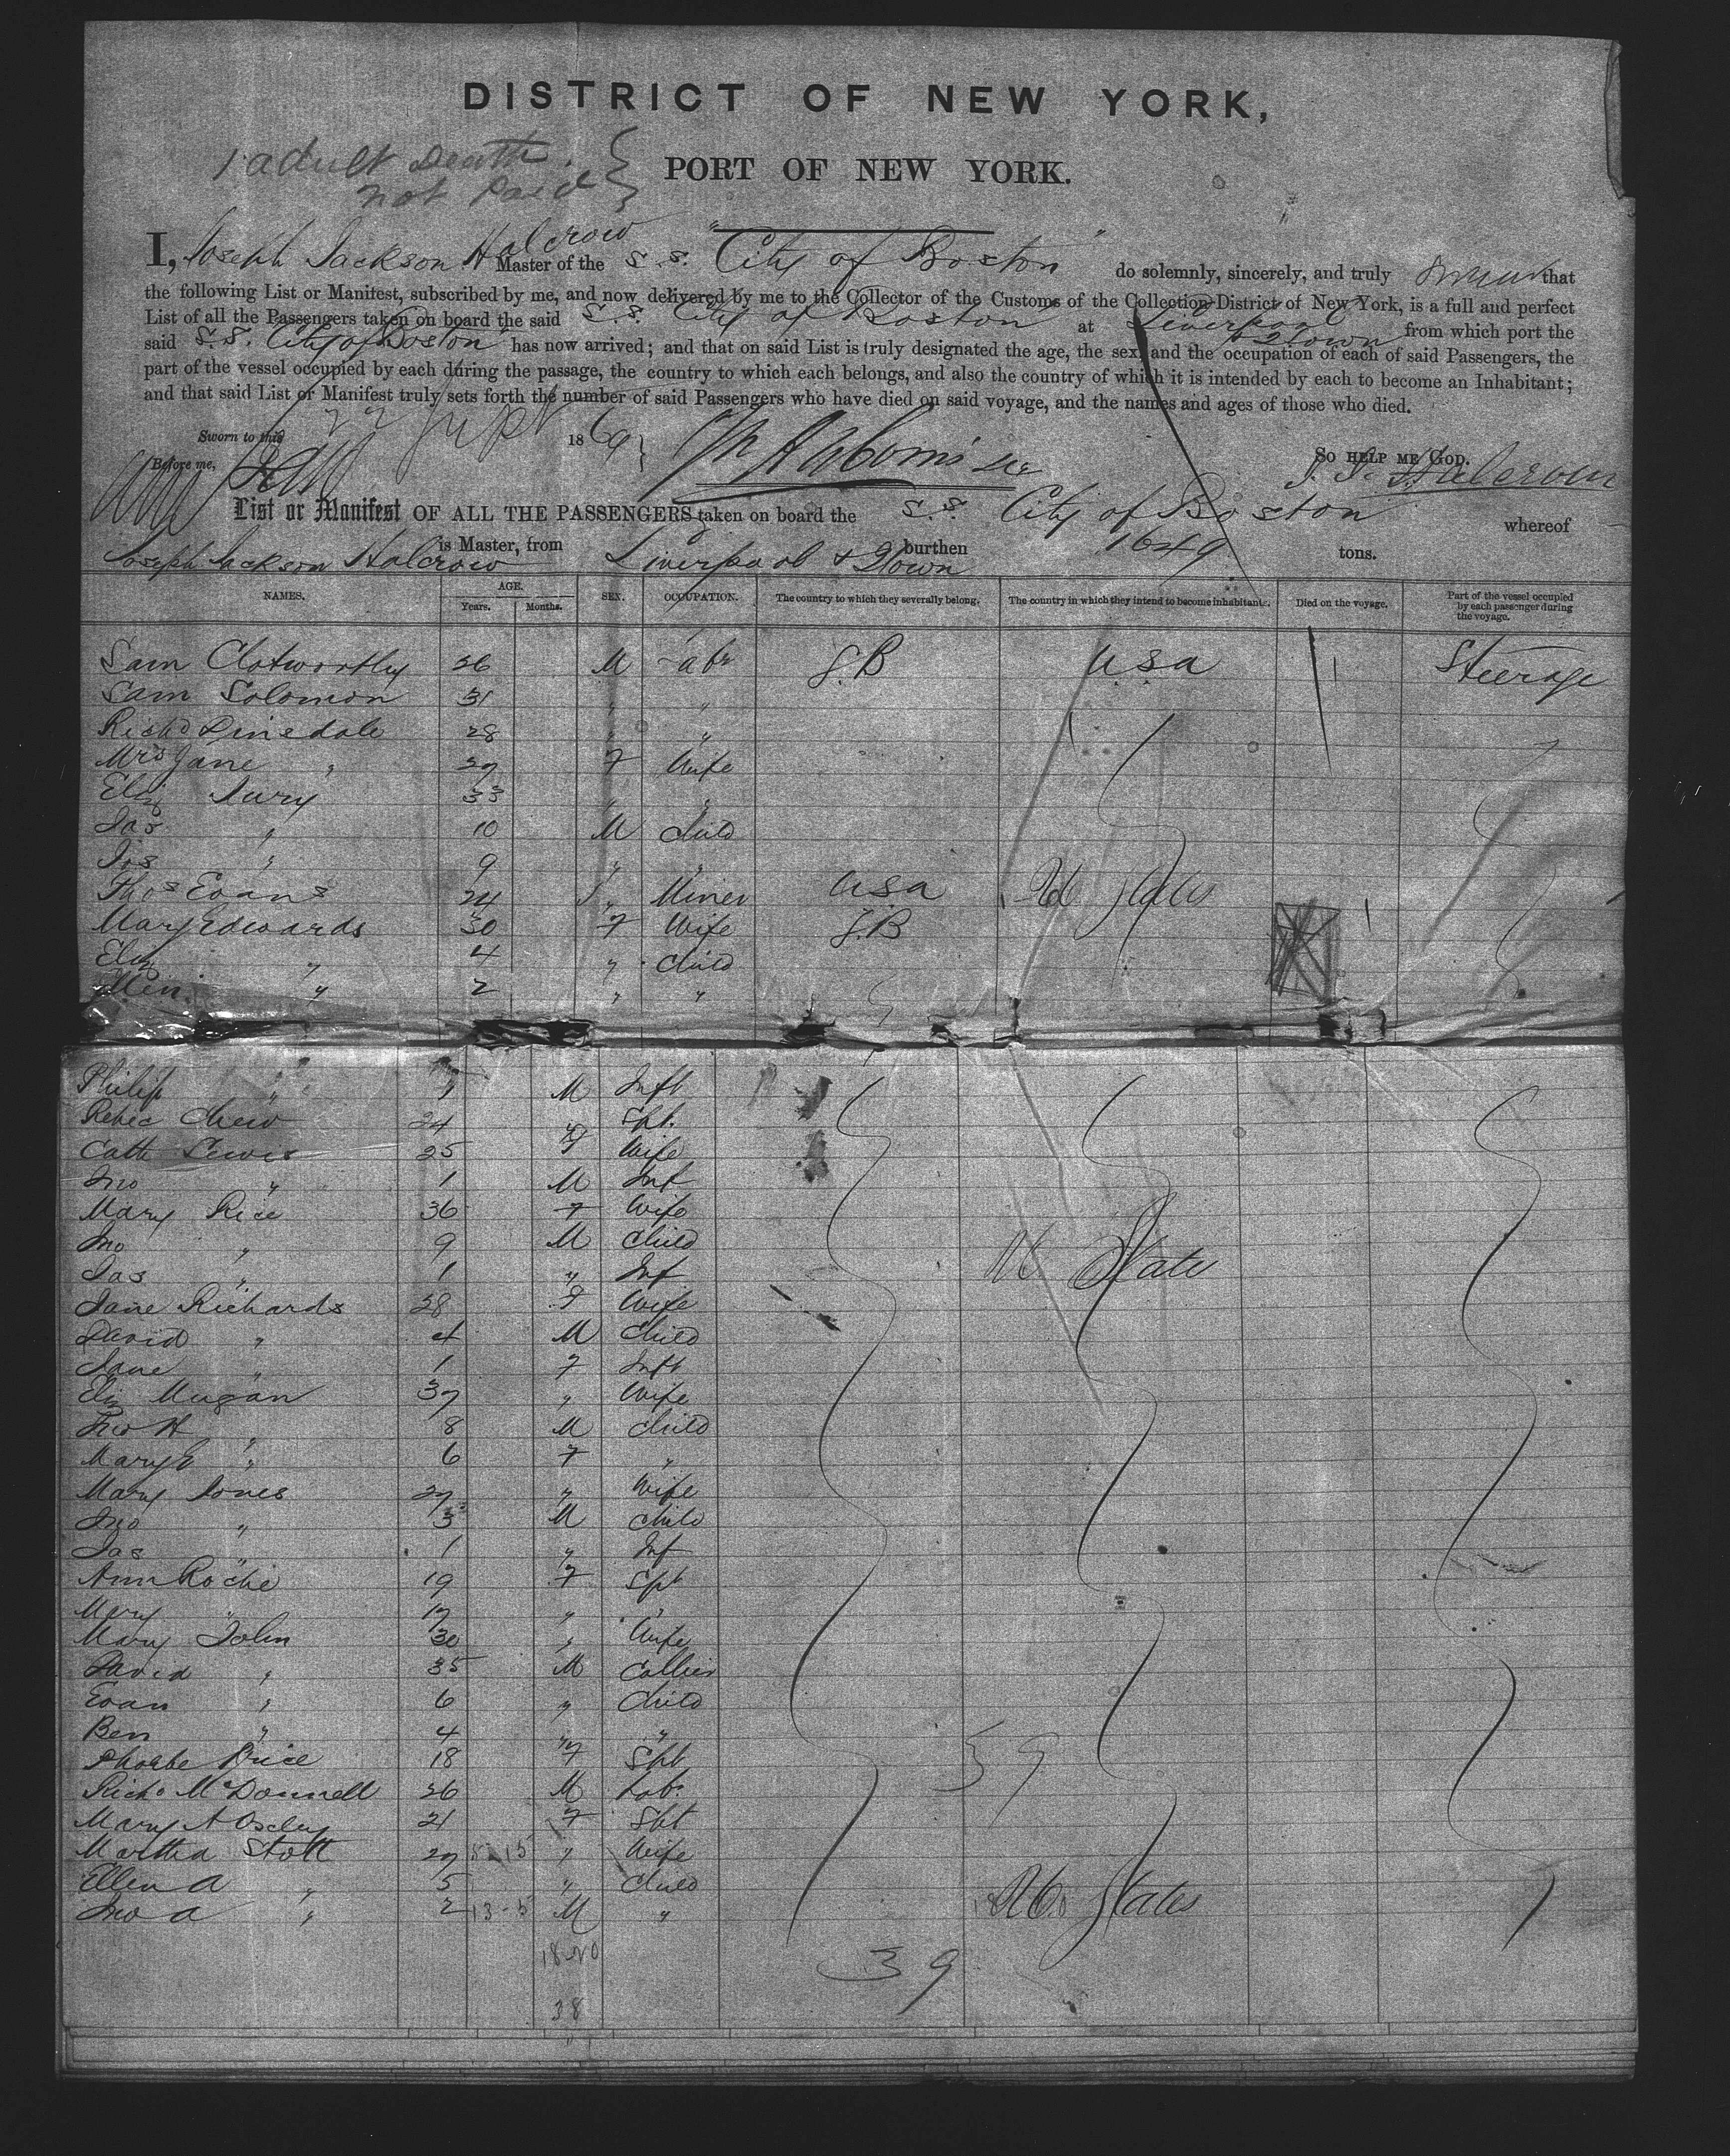 DISTRICT OF NEW YORK,
1 adult Death.
not Paid
PORT OF NEW YORK.
I, Joseph Jackson Halcrow Master of the S.S. "City of Boston" do solemnly, sincerely, and truly that
the following List or Manifest, subscribed by me, and now delivered by me to the Collector of the Customs of the Collection District of New York, is a full and perfect
List of all the Passengers taken on board the said S.S. City of Boston at Liverpool & Qtown from which port the
said S.S. City of Boston has now arrived; and that on said List is truly designated the age, the sex, and the occupation of each of said Passengers, the
part of the vessel occupied by each during the passage, the country to which each belongs, and also the country of which it is intended by each to become an Inhabitant;
and that said List or Manifest truly sets forth the number of said Passengers who have died on said voyage, and the names and ages of those who died.
Sworn to this 22 Sept 1869
So help me God.
Before me, J. J. Halcrow
List or Manifest OF ALL THE PASSENGERS taken on board the S.S. City of Boston whereof
Joseph Jackson Halcrow is Master, from Liverpool & Qtown burthen 1649 tons.
NAMES. AGE. Years. Months. SEX. OCCUPATION. The country to which they severally belong. The country in which they intend to become inhabitants. Died on the voyage. Part of the vessel occupied by each passenger during the voyage.
Sam Clotworthy 26 M G.B U.S.A Steerage
Sam Solomon 31 " "
Richd Linsdale 28 " "
Mrs Jane " 27 F Wife
Eliz 33 " "
Jas " 10 M Child
Jos " 9 " "
Thos Evans 24 " Miner U.S.A Ud States
Mary Edwards 30 F Wife G.B
Eliz " 4 " Child
Ellen " 2 " "
Philip " 1 M Inft
Rebec Chew 24 F Spt.
Cath Lewis 25 " Wife
Jno " 1 M Inf
Mary Rice 36 F Wife
Jno " 9 M Child
Jas " 1 " Inf
Jane Richards 28 F Wife
David " 4 M Child
Jane " 1 F Inft
Eliz Mugan 37 " Wife
Jno H " 8 M Child
Mary E " 6 F "
Mary Jones 27 " Wife
Jno " 3 M Child
Jas " 1 " Inf
Ann Roche 19 F Spt
Mary " 17 " "
Mary John 30 " Wife
David " 35 M Collier
Evan " 6 " Child
Ben " 4 " "
Phoebe Price 18 F Spt
Richd McDonnell 26 M Labr
Mary A Oxley 21 F Spt
Martha Stott 27 " Wife
Ellen A " 5 " Child
Jno A " 2 13-5 M " U. States
18-20
39
38